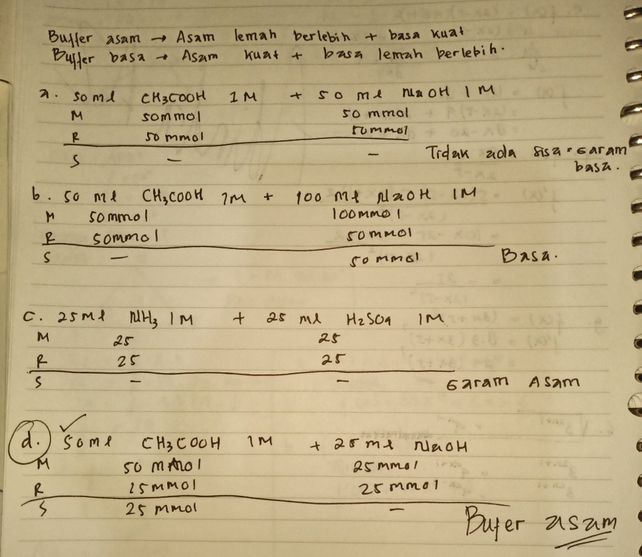 Buffer asam → Asam lemah berlebih + basa kuat
Buffer basa → Asam kuat + basa lemah berlebih.
a. 50 ml CH3COOH 1M + 50 ml NaOH 1M
M 50mmol 50 mmol
R 50 mmol 50mmol
S - - Tidak ada sisa = Garam
basa.
b. 50 ml CH3COOH 1M + 100 ml NaOH 1M
M 50mmol 100mmol
R 50mmol 50 mmol
S - 50 mmol Basa.
c. 25ml NH3 1M + 25 ml H2SO4 1M
M 25 25
R 25 25
S - - Garam Asam
d. 50ml CH3COOH 1M + 25 ml NaOH
M 50 mmol 25mmol
R 25mmol 25 mmol
S 25 mmol -
Bufer asam